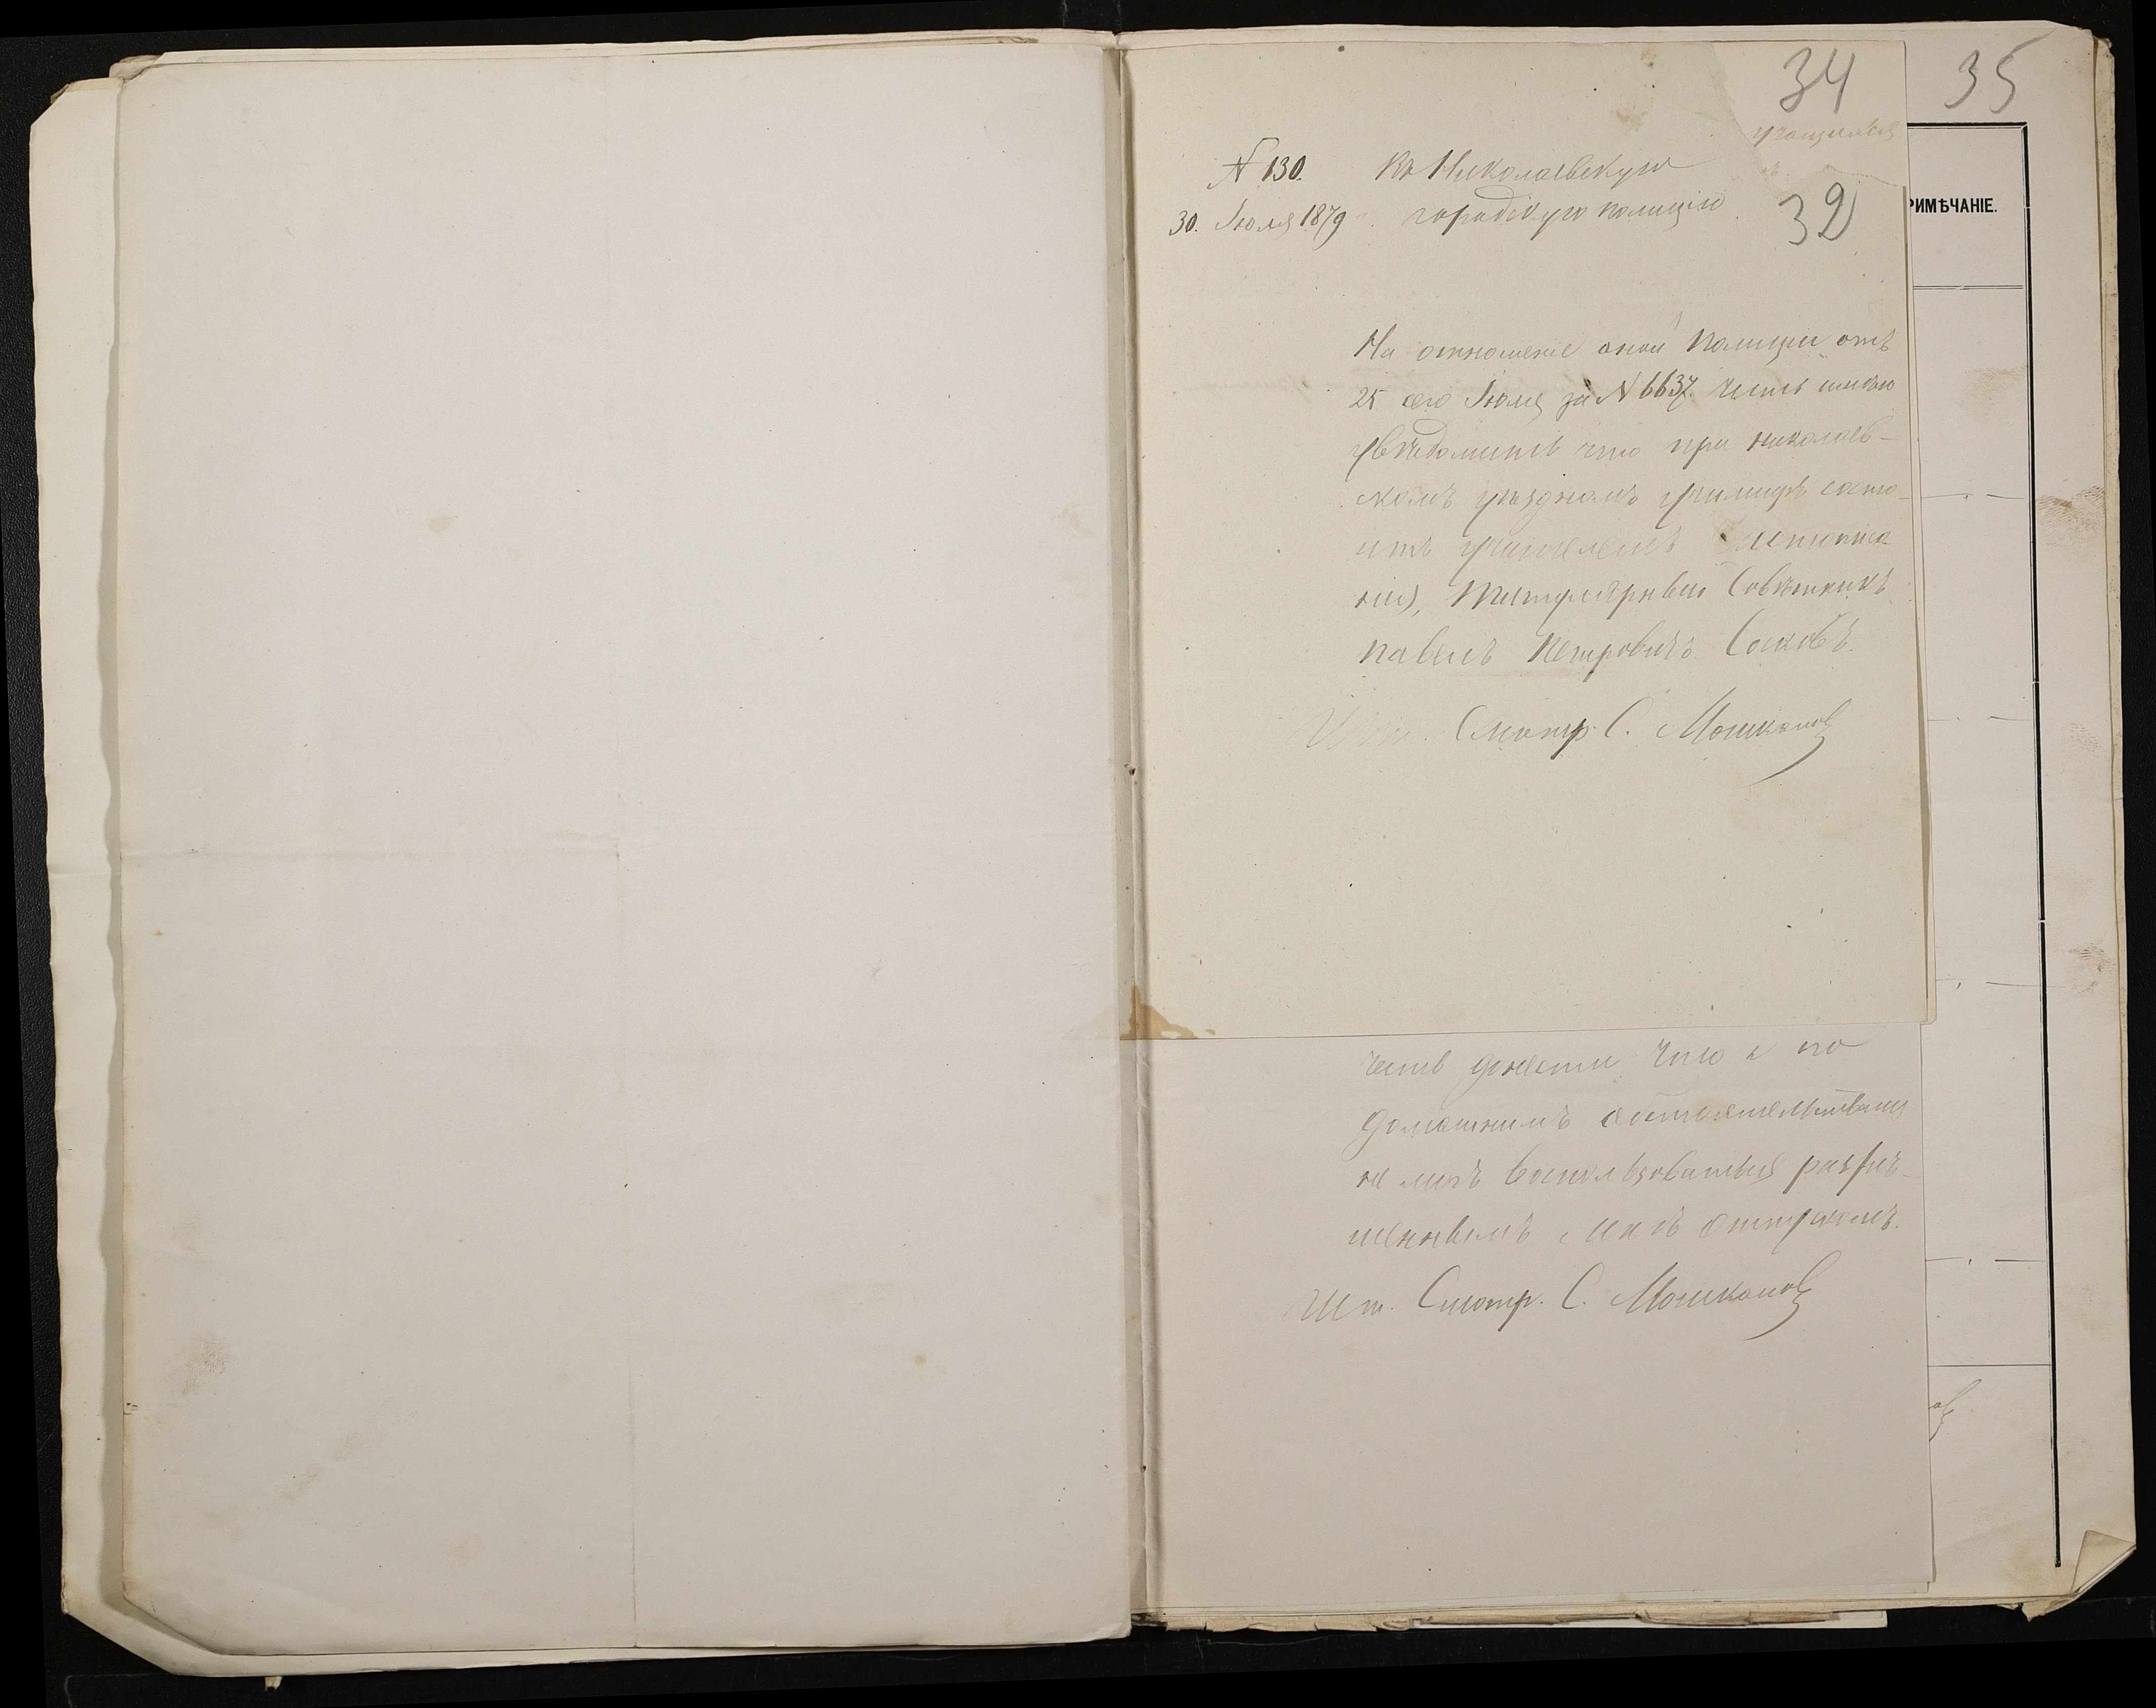 34
35
учащихся
N 130. Въ Николаевскую
30. Июля 1879 городскую полицию
32
РИМѢЧАНІЕ.
На отношеніе оной Полиціи отъ
25 сего Іюля за N 6637 честь имѣю
увѣдомить что при николаев-
скомъ уѣздномъ училищѣ состо-
итъ учителемъ
Титулярный Совѣтникъ
павелъ Петровичъ
Шт. Смотр. С. Мошканов
честь донести что я по
домашнимъ обстоятельствамъ
не могъ воспользоваться разрѣ-
шеннымъ мнѣ отпускомъ.
Шт. Смотр. С. Мошканов
ов